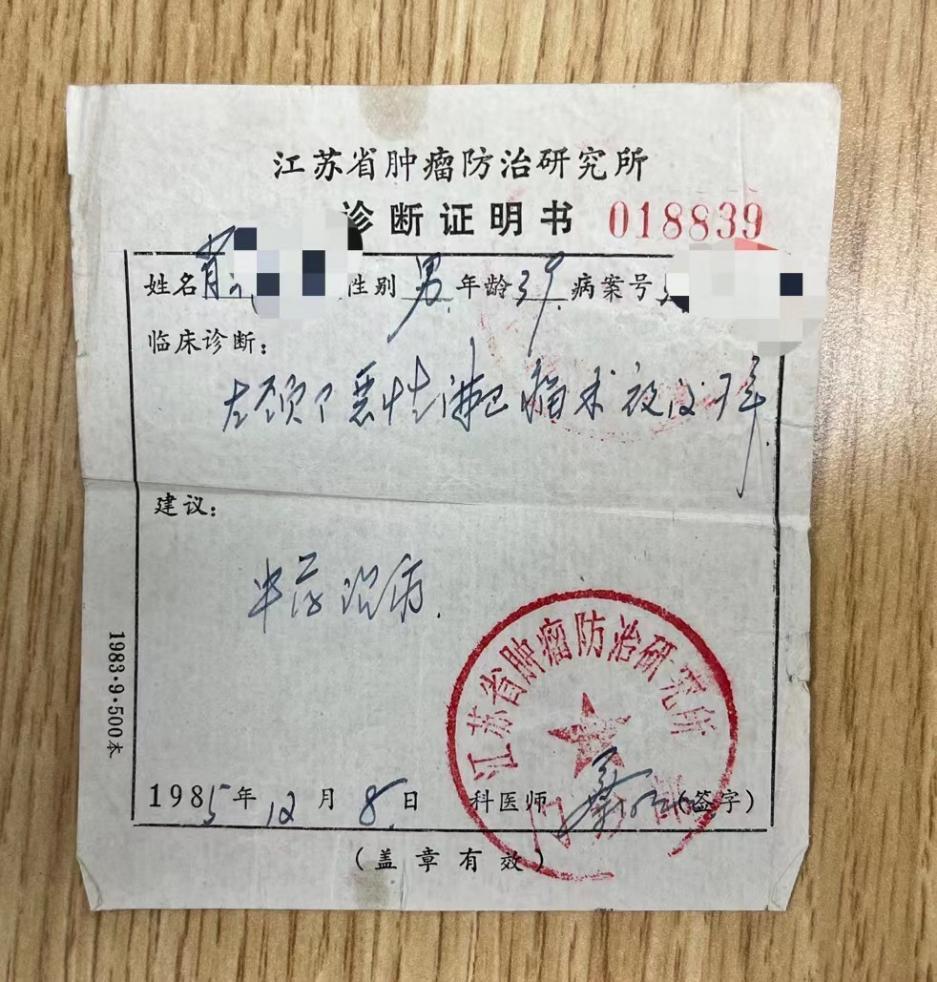 江苏省肿瘤防治研究所
诊断证明书 018839
姓名 性别 男 年龄 39 病案号
临床诊断：
左颈 恶性淋巴瘤术后
建议：
中药治疗.
江苏省肿瘤防治研究所
1985年12月8日 科医师 (签字)
(盖章有效)
1983·9·500本